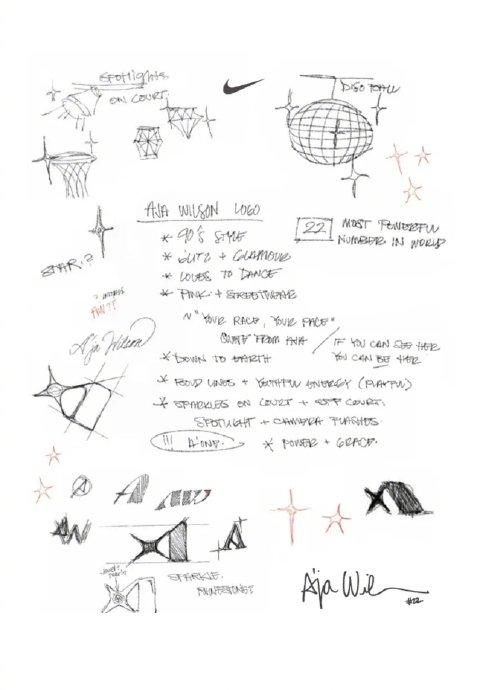 SPOTLIGHTS
ON COURT.
DISCO BALL
AJA WILSON LOGO
22 MOST POWERFUL
NUMBER IN WORLD
* 90'S STYLE
* GLITZ + GLAMOUR
* LOVES TO DANCE
STAR?
* PINK + STREETWEAR
~ "YOUR RACE, YOUR PACE"
QUOTE FROM AJA / IF YOU CAN SEE HER
YOU CAN BE HER
A'ja Wilson
* DOWN TO EARTH
* BOLD LINES + YOUTHFUL ENERGY (PLAYFUL)
* SPARKLES ON COURT + OFF COURT.
SPOTLIGHT + CAMERA FLASHES
A'ONE. * POWER + GRACE.
A
AW
SPARKLE.
A'ja Wil
#22